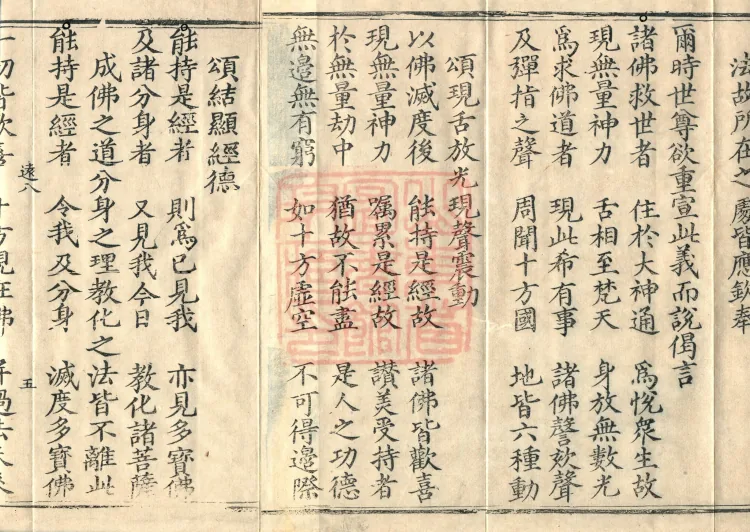 法故所在之處皆應欽奉
爾時世尊欲重宣此義而說偈言
諸佛救世者 住於大神通 爲悅衆生故
現無量神力 舌相至梵天 身放無數光
爲求佛道者 現此希有事 諸佛謦欬聲
及彈指之聲 周聞十方國 地皆六種動
頌現舌放光現聲震動
以佛滅度後 能持是經故 諸佛皆歡喜
現無量神力 囑累是經故 讚美受持者
於無量劫中 猶故不能盡 是人之功德
無邊無有窮 如十方虛空 不可得邊際
頌結顯經德
能持是經者 則爲已見我 亦見多寶佛
及諸分身者 又見我今日 教化諸菩薩
成佛之道分身之理教化之法皆不離此
能持是經者 令我及分身 滅度多寶佛
遠八 五
一切皆歡喜 十方現在佛